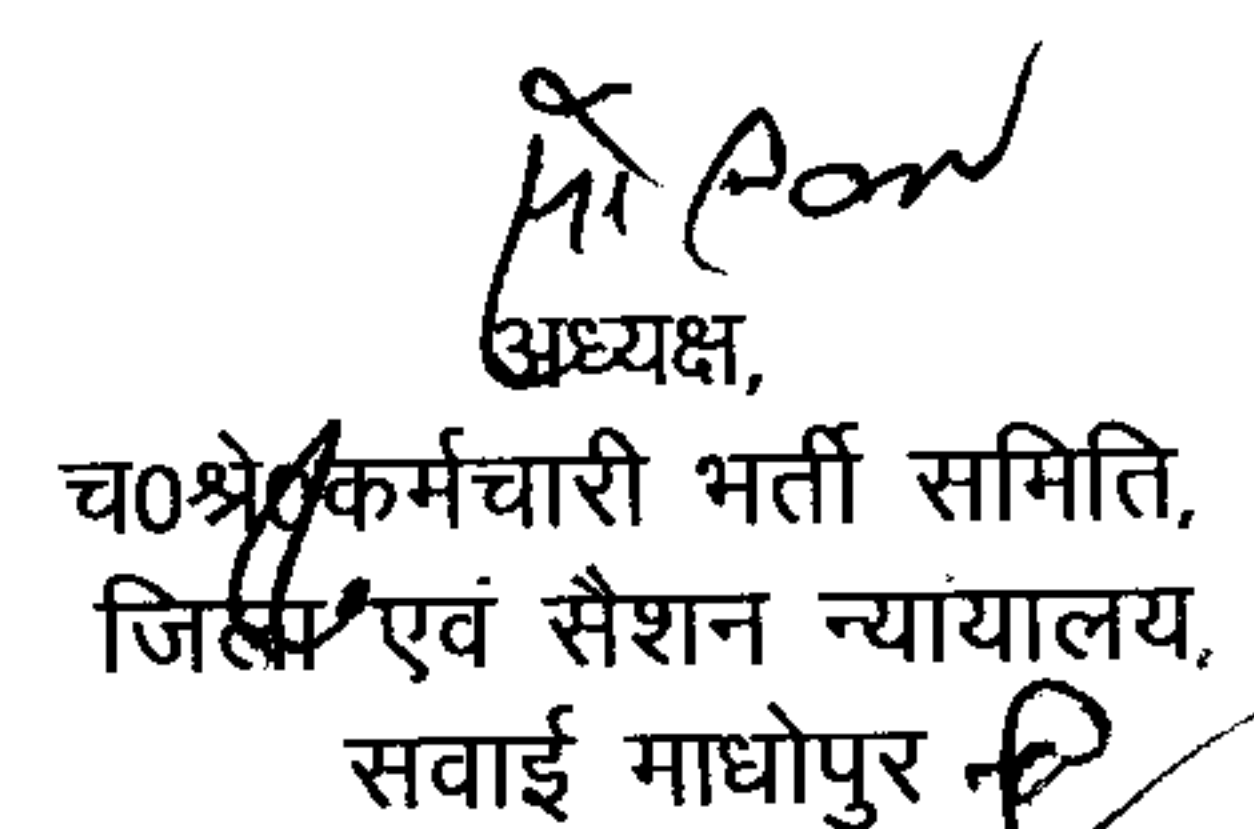 अध्यक्ष,
च0श्रे0कर्मचारी भर्ती समिति,
जिला एवं सैशन न्यायालय,
सवाई माधोपुर